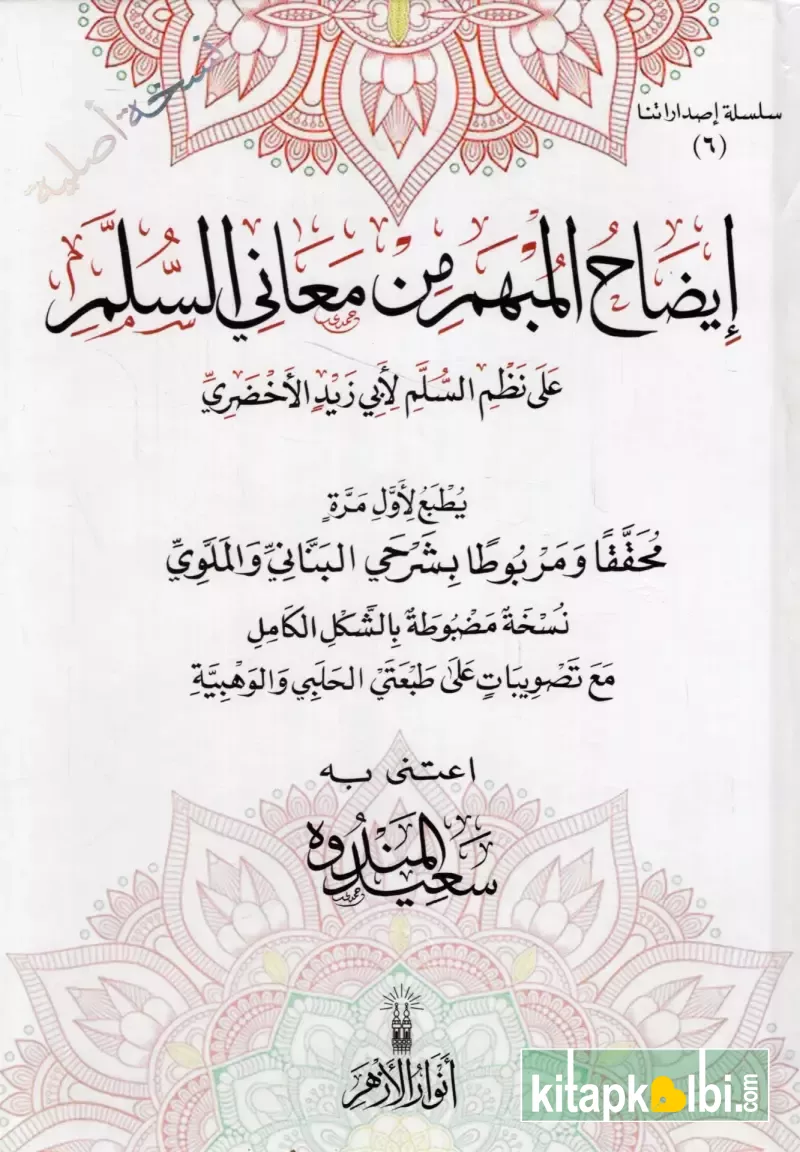 سلسلة إصداراتنا
(٦)
نسخة أصلية
إِيضَاحُ المُبْهَمِ مِنْ مَعَانِي السُّلَّمِ
عَلَى نَظْمِ السُّلَّمِ لِأَبِي زَيْدٍ الأَخْضَرِيِّ
يُطْبَعُ لِأَوَّلِ مَرَّةٍ
مُحَقَّقًا وَمَرْبُوطًا بِشَرْحَيِ البَنَّانِيِّ وَالمَلَّوِيِّ
نُسْخَةٌ مَضْبُوطَةٌ بِالشَّكْلِ الكَامِلِ
مَعَ تَصْوِيبَاتٍ عَلَى طَبْعَتَيِ الحَلَبِي وَالوَهْبِيَّةِ
اعتنى به
سَعِيد المَنْدُوه
أَنْوَارُ الأَزْهَرِ
kitapkalbi.com